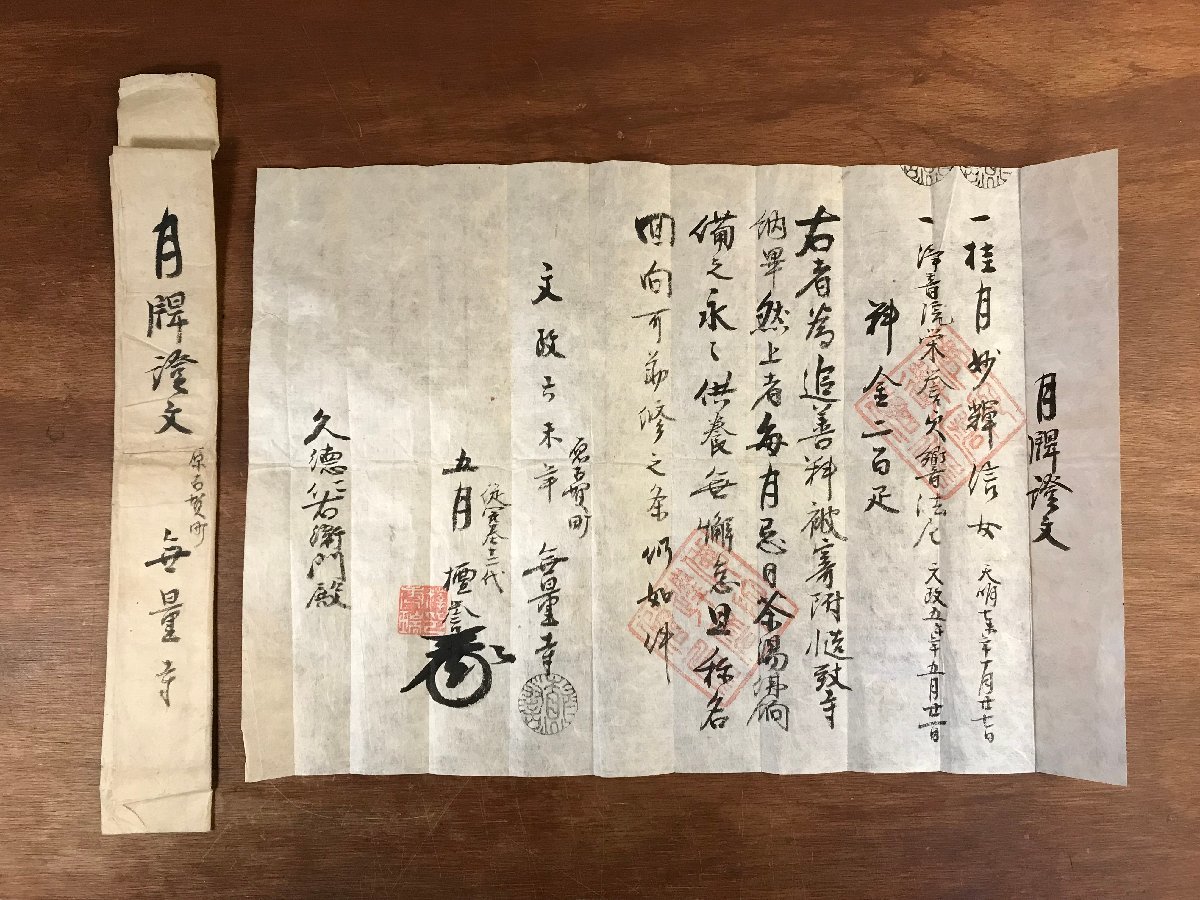 月牌證文
一桂月妙輝信女 天明七未年十一月廿七日
一浄音院栄誉欠響法尼 文政五午年五月廿一日
料金二百疋
右者為追善料被寄附慥致寺
納畢然上者毎月忌日茶湯佛餉
備之永々供養無懈怠且称名
回向可勤修之条仍如件
原古賀町
文政六未年 無量寺
五月 檀誉
久徳仁右衛門殿
月牌證文
原古賀町
無量寺